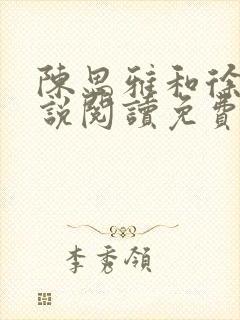 陳思雅和徐
說閱讀免費
李秀領